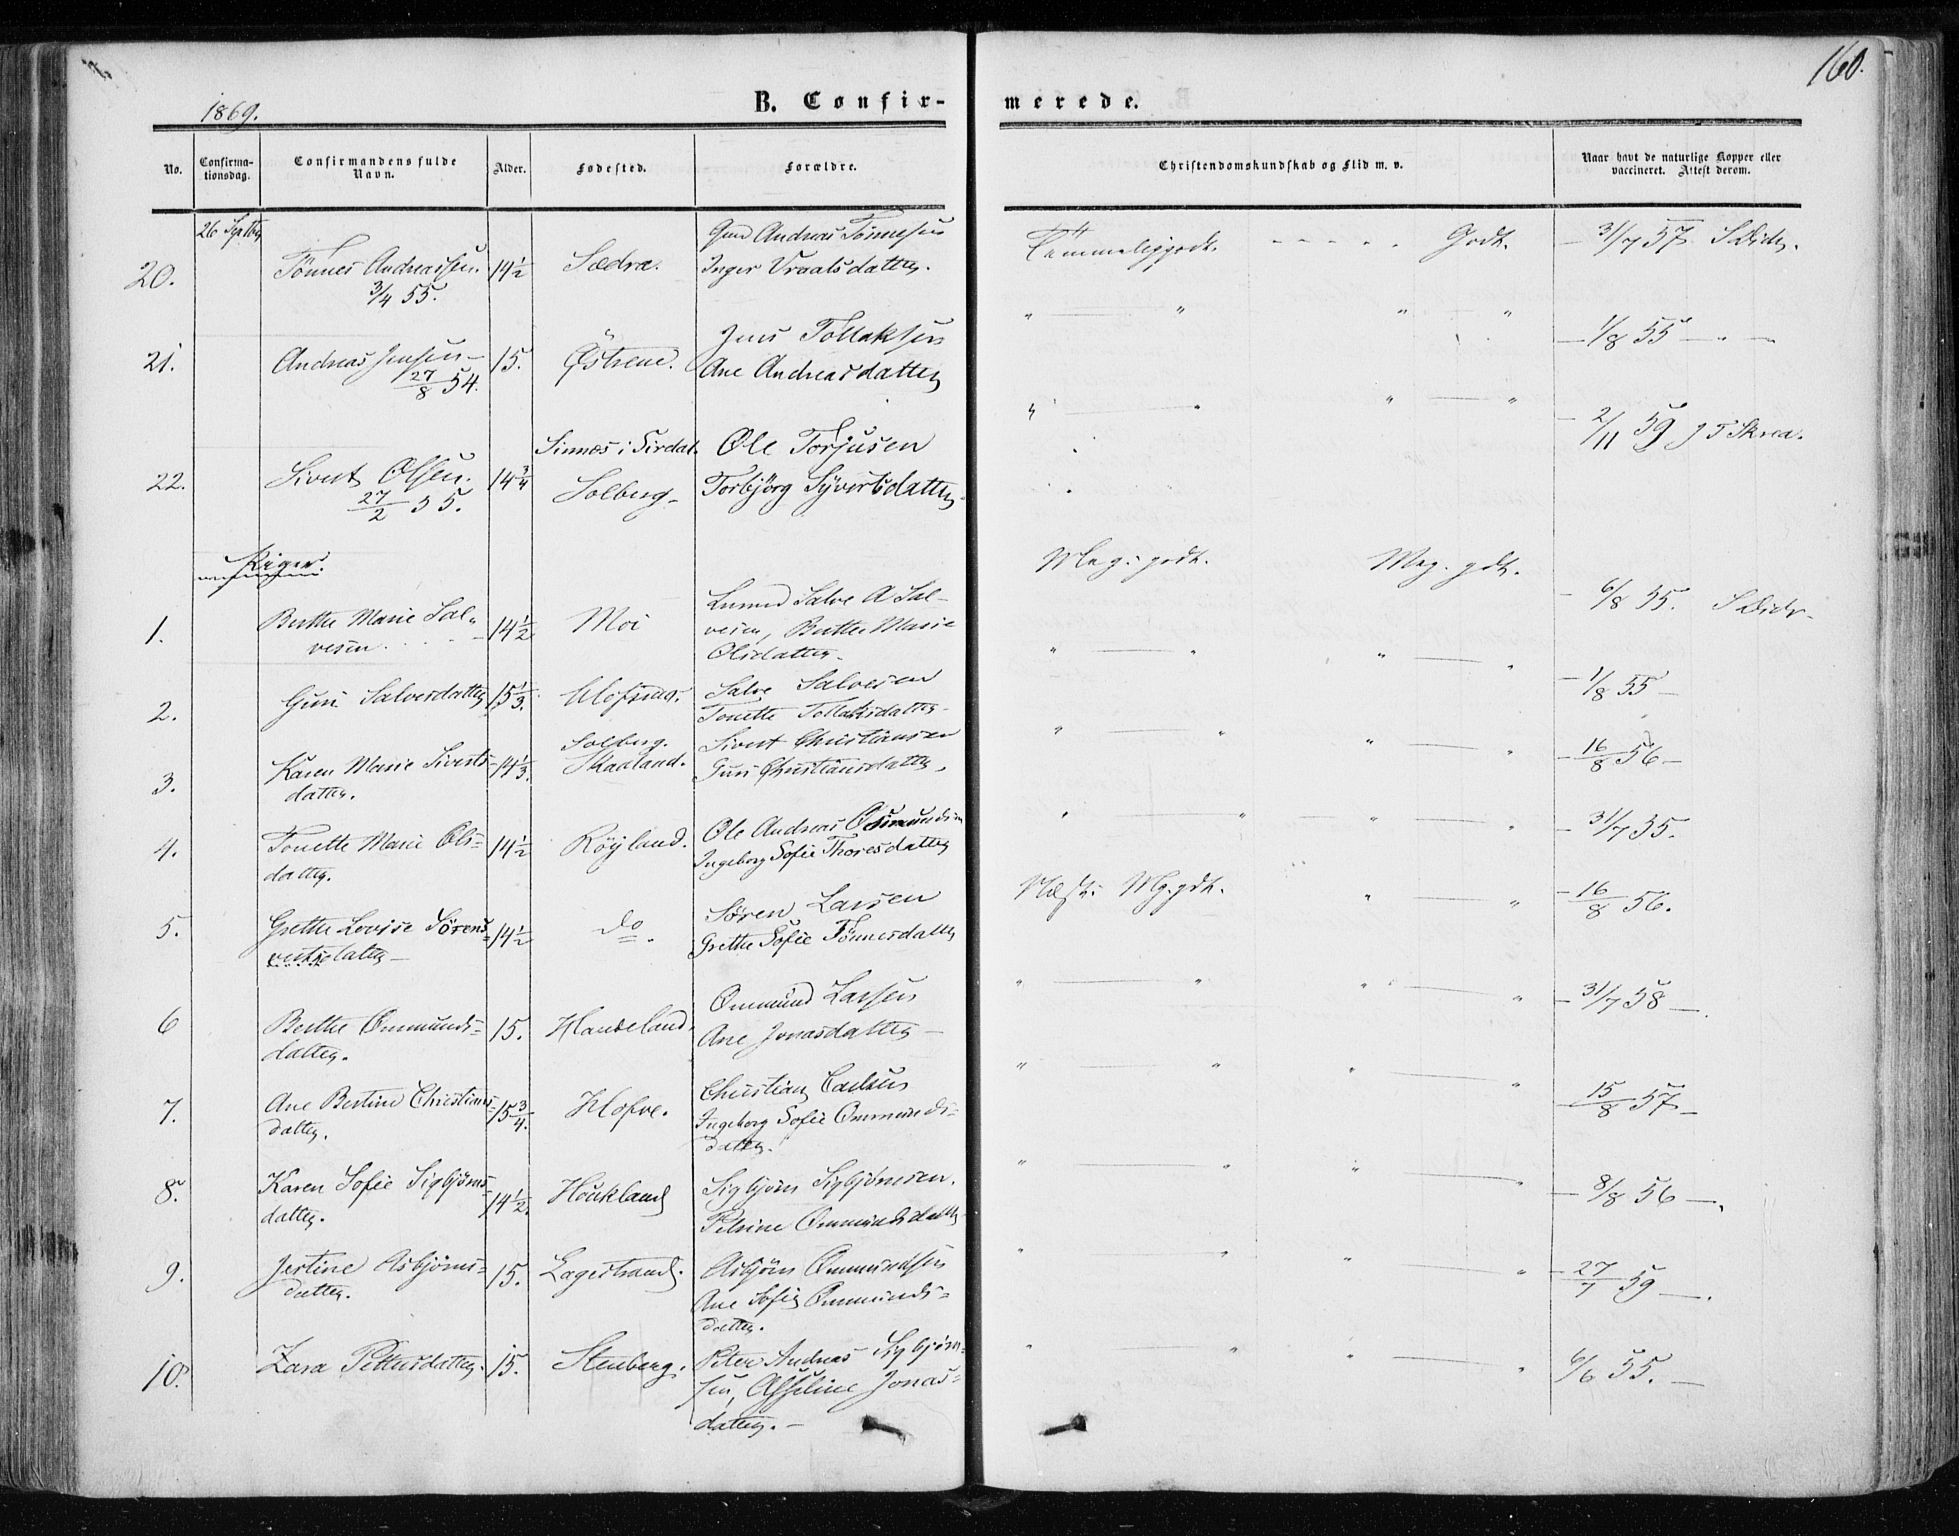 160.
1869.
B. Confirmerede.
No. Confirmationsdag. Confirmandens fulde Navn. Alder. Fødested. Forældre. Christendomskundskab og Flid m. v. Naar havt de naturlige Kopper eller vaccineret. Attest derom.
26 Septbr
20. Tönnes Andreassen. 3/4 55. 14 1/2 Sædra. Andreas Tönnesen
Inger Vraalsdatter. Temmelig godt. Godt. 31/7 57
21. Andreas Jensen 27/8 54. 15. Östrene. Jens Tollaksen
Ane Andreasdatter " " " " 1/8 55
22. Sivert Olsen. 27/2 55. 14 3/4 Sinnes i Sirdal.
Solberg Ole Torjusen
Torbjörg Syvertsdatter " " " " 2/11 59 J T Skrea.
Piger.
1. Berthe Marie Salvesen 14 1/2 Moi Salve A Salvesen, Berthe Marie
Olsdatter Meg: godt. Meg. gdt. 6/8 55.
2. Guri Salvesdatter 15 1/3. Salve Salvesen
Tonette Tollaksdatter " " " " 1/8 55
3. Karen Marie Siverts
datter. 14 1/3. Solberg.
Skaaland. Sivert Christiansen
Guri Christiansdatter. " " " " 16/8 56
4. Tonette Marie Ols=
datter. 14 1/2 Röyland. Ole Andreas Ommundsen
Ingeborg Sofie Thoresdatter " " " " 31/7 55.
5. Grethe Lovise Sörens=
datter 14 1/2 do. Sören Larsen
Grethe Sofie Tönnesdatter Næst: Mg. gdt. " " 16/8 56.
6 Berthe Ommunds=
datter. 15. Haudeland. Ommund Larsen
Ane Jonasdatter " " " " 31/7 58
7. Ane Bertine Christians=
datter. 15 3/4. Hofve. Christian Carlsen
Ingeborg Sofie Ommunds=
datter. " " " " 15/8 57
8. Karen Sofie Sigbjörns=
datter. 14 1/2. Houkland Sigbjörn Sigbjörnsen.
Petrine Ommundsdatter " " " " 8/8 56
9. Jertine Asbjörns=
datter. 15. Lagestrand. Asbjörn Ommundsen
Ane Sofie Ommunds=
datter. " " " " 27/7 59
10. Zara Pettersdatter. 15. Stenberg. Peter Andreas Sigbjörn=
sen, Asseline Jonas=
datter. " " " " 6/6 55.